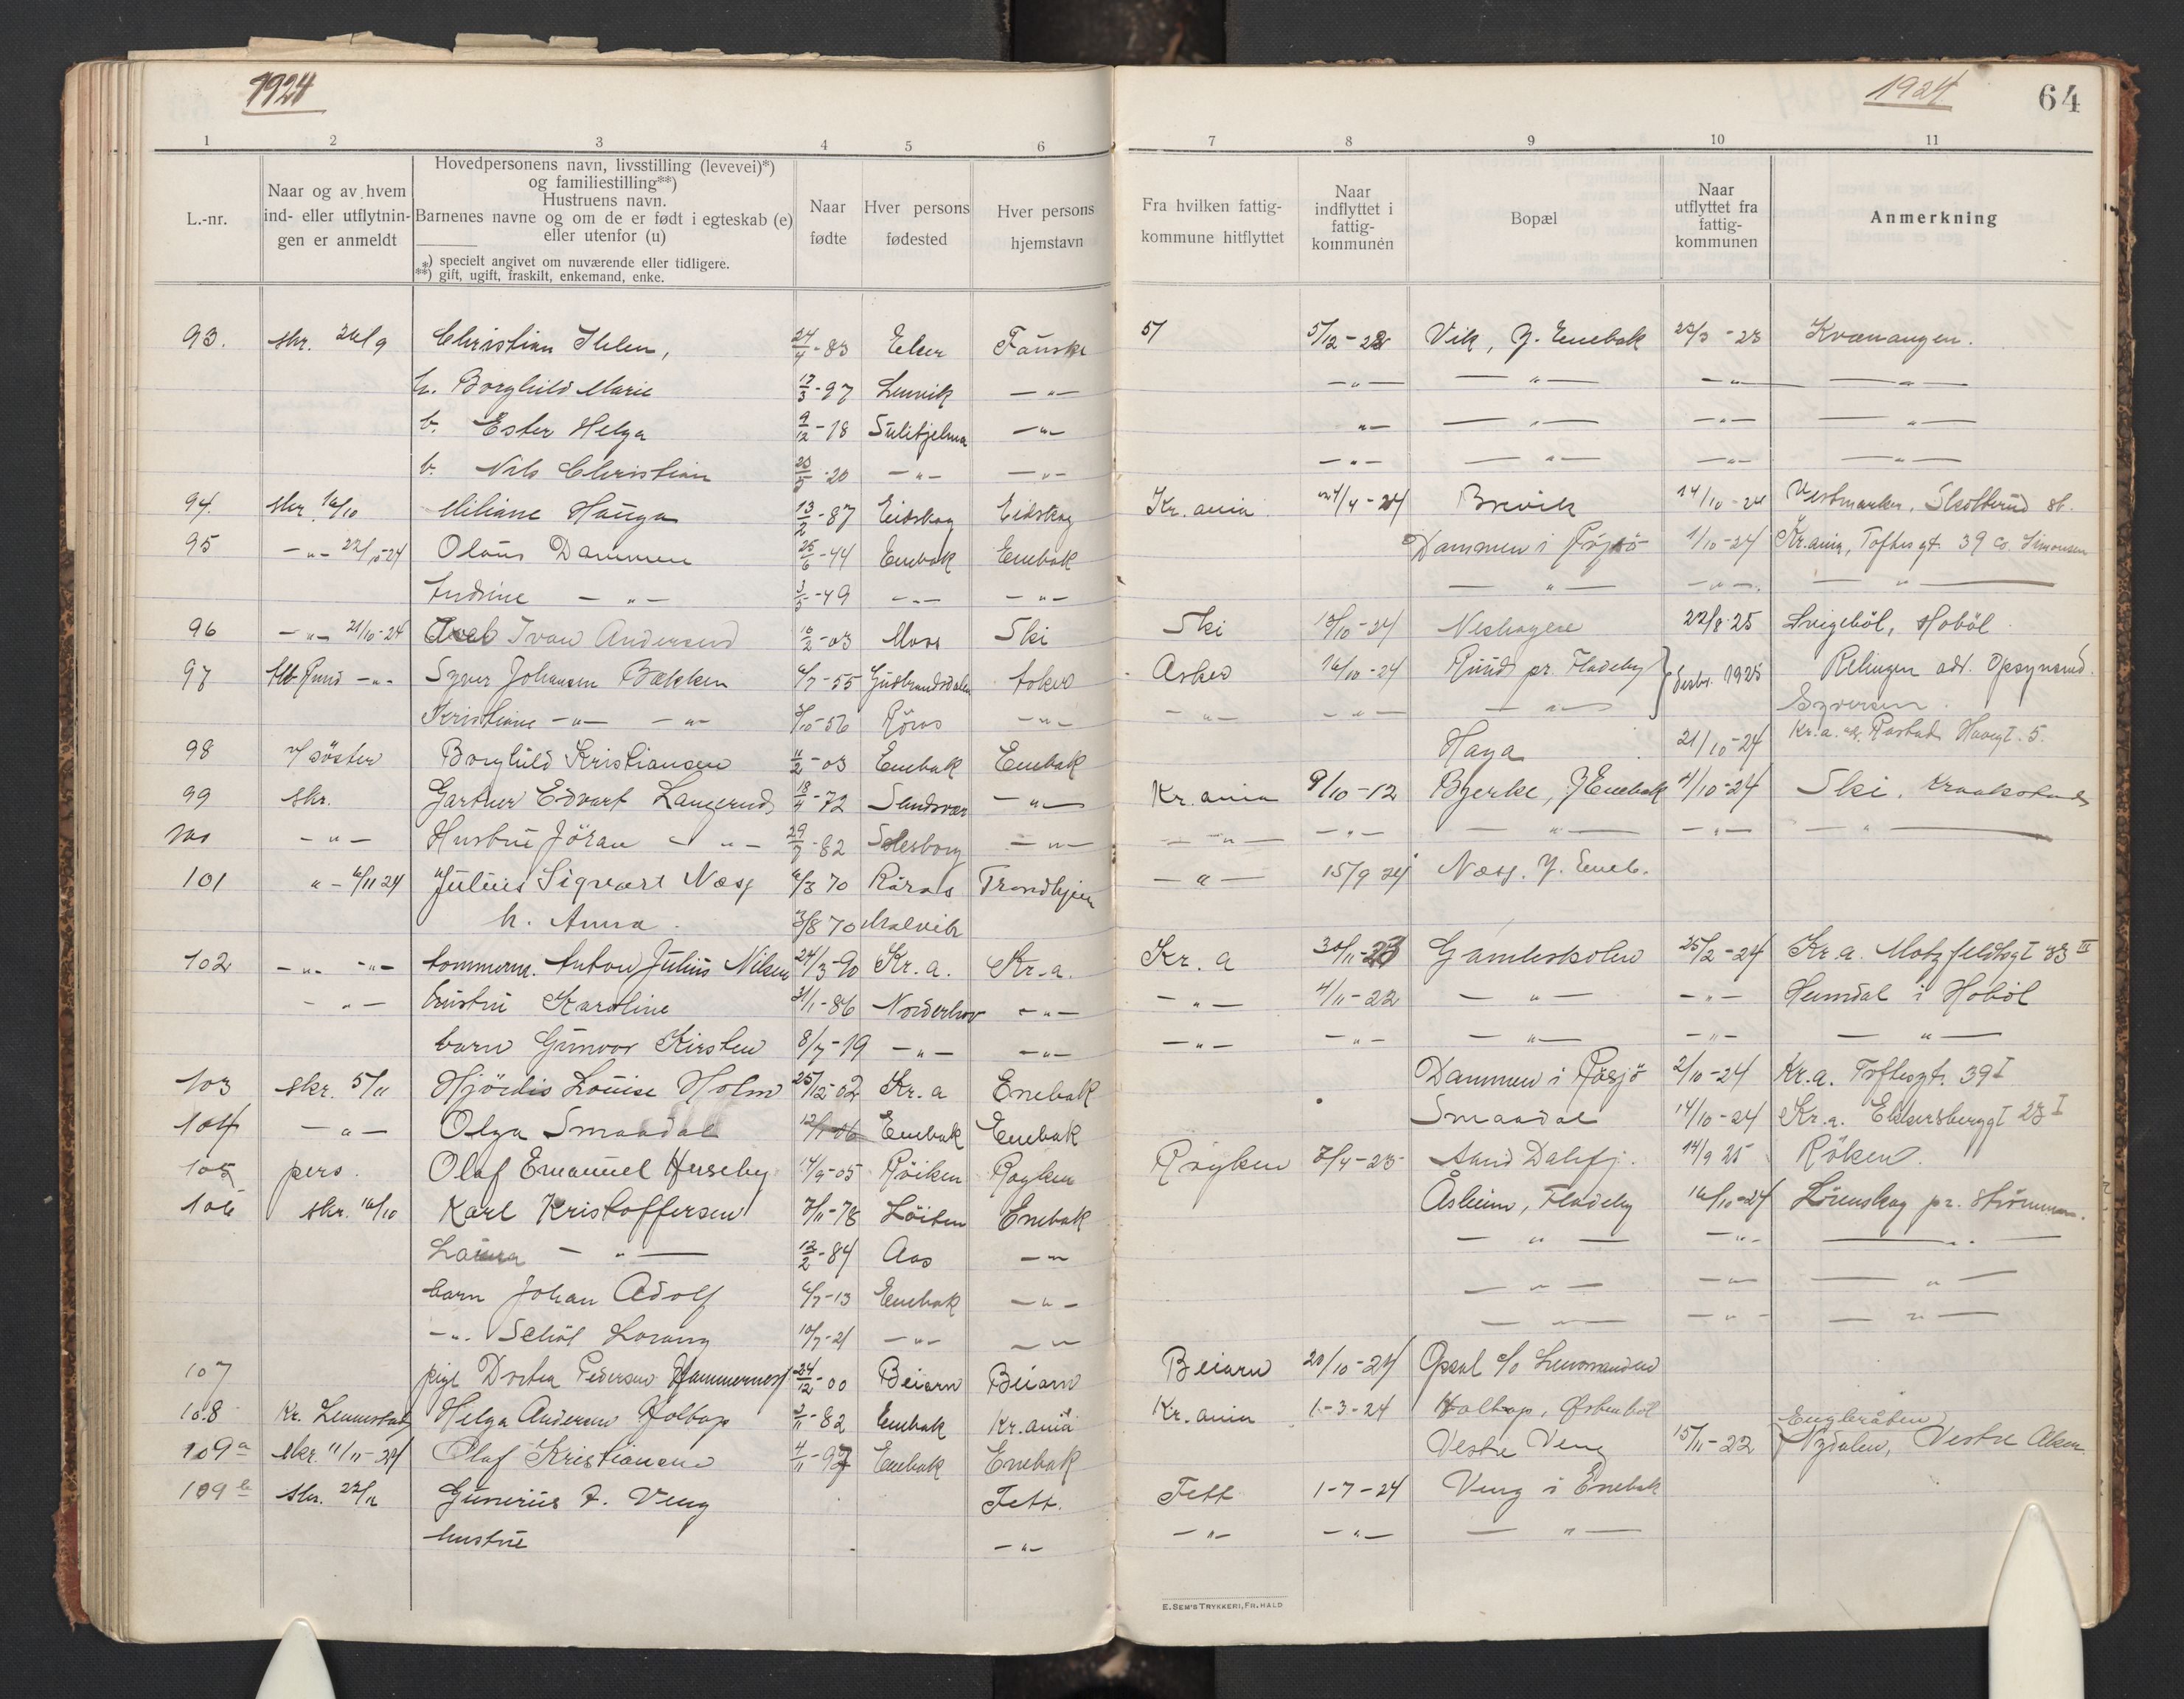 1924
1924 64
1 2 3 4 5 6 7 8 9 10 11
L.-nr.
Naar og av hvem
ind- eller utflytnin-
gen er anmeldt
Hovedpersonens navn, livsstilling (levevei)*)
og familiestilling**)
Hustruens navn.
Barnenes navne og om de er født i egteskab (e)
eller utenfor (u)
*) specielt angivet om nuværende eller tidligere.
**) gift, ugift, fraskilt, enkemand, enke.
Naar
fødte
Hver persons
fødested
Hver persons
hjemstavn
Fra hvilken fattig-
kommune hitflyttet
Naar
indflyttet i
fattig-
kommunen
Bopæl
Naar
utflyttet fra
fattig-
kommunen
Anmerkning
93. skr. Christian Ihlen, 24/4-83 Fauske 5/12-22 Vik, Y. Enebak 22/3-23 Kvænangen.
h. Borghild Marie 17/3-97 Lenvik -"- -"- -"- -"- -"-
b. Ester Helga 9/12-18 Sulitjelma -"- -"- -"- -"- -"-
b. Nils Christian 20/5-20 -"- -"- -"- -"- -"- -"-
94. skr. 16/10 Miliane Hauga 13/2-87 Eidskog Eidskog Kr.ania 24/4-24 Brevik 14/10-24 Vestmarka, Skotterud st.
95 -"- 22/10-24 Olaus Dammen 25/6-44 Enebak Enebak Dammen i 1/10-24 Kr.ania, Toftes gt. 39 co. Simonsen
Andrine -"- 3/5-49 -"- -"- -"- -"- -"-
96 -"- 21/10-24 Ivan Andersen 16/2-03 Moss Ski Ski 10-24 22/8-25 Hobøl
97 -"- Syver Johansen Bækken 6/7-55 Gudbrandsdalen Asker Asker 16/10-24 Rund pr. Fladeby } 1925 Relingen adr. Opsynsmd.
Kristiane -"- -"- 10-56 Röros -"- -"- -"- -"- Syversen.
98 v/ söster Borghild Kristiansen 11/2-03 Enebak Enebak Haga 21/10-24 Kr.a. 5.
99 skr. Gartner Edvart Langerud 18/4-72 Sandsvær -"- Kr.ania 9/10-12 Bjerke, Y Enebak 4/10-24 Ski, Kraakstad
100 -"- Hustru Jöran -"- 29/7-82 -"- -"- -"- -"- -"- -"-
101 " - 6/11 24 Julius Sigvart Næss 6/3 70 Röros Trondhjem -"- 15/9 24 Næss. Y. Eneb.
h. Anna. 3/8 70 Malvik
102 -"- -"- tommerm. Anton Julius Nilsen 24/3-90 Kr.a. Kr.a. Kr. a 30/11-23 Gamleskolen 25/2-24 Kr.a. Motzfeldtsgt 33 III
-"- hustru Karoline 31/1-86 Norderhov -"- -"- 4/11-22 -"- -"- Hemdal i Hobøl
barn Gunvor Kirsten 8/7-19 -"- -"- -"- -"- -"- -"- -"-
103 skr. 5/11 Hjördis Louise Holm 25/12-02 Kr.a Enebak Dammen i 2/10-24 Kr.a. Toftesgt. 39 I
104 -"- Olga Smaadal Enebak Enebak Smaadal 14/10-24 Kr.a. Eilersberggt 23 I
105 pers. Olaf Emanuel Herseby 14/9-05 Röiken Røyken Røyken 7/4-23 14/9 25 Röken.
106 skr. 16/10 Karl Kristoffersen 7/11-78 Löiten Enebak Åsheim, Fladeby 16/10-24 Lörenskog pr. Strømmen.
Laura -"- 12/2-84 Aas -"- -"- -"- -"-
barn Johan Adolf 6/7-13 Enebak -"- -"- -"- -"-
-"- Lorang 10/7-21 -"- -"- -"- -"- -"-
107 pige Dortea Pedersen Hammernes 24/12-00 Beiarn Beiarn Beiarn 20/10-24 Opsal
108 Kr. Lennestad Helga Andersen Holtop 3/11-82 Enebak Kr.ania Kr.ania 1-3-24 Holtop,
109a skr. 11/11-24 Olaf Kristiansen 4/11-97 Enebak Enebak Vestre Veng 15/11-22 Engbråten Nydalen, Vestre Aker
109b skr. 22/11 Gunerius A. Veng Fett. Fett 1-7-24 Veng i Enebak
hustru -"- -"- -"- -"-
E. SEM'S TRYKKERI, FR.HALD